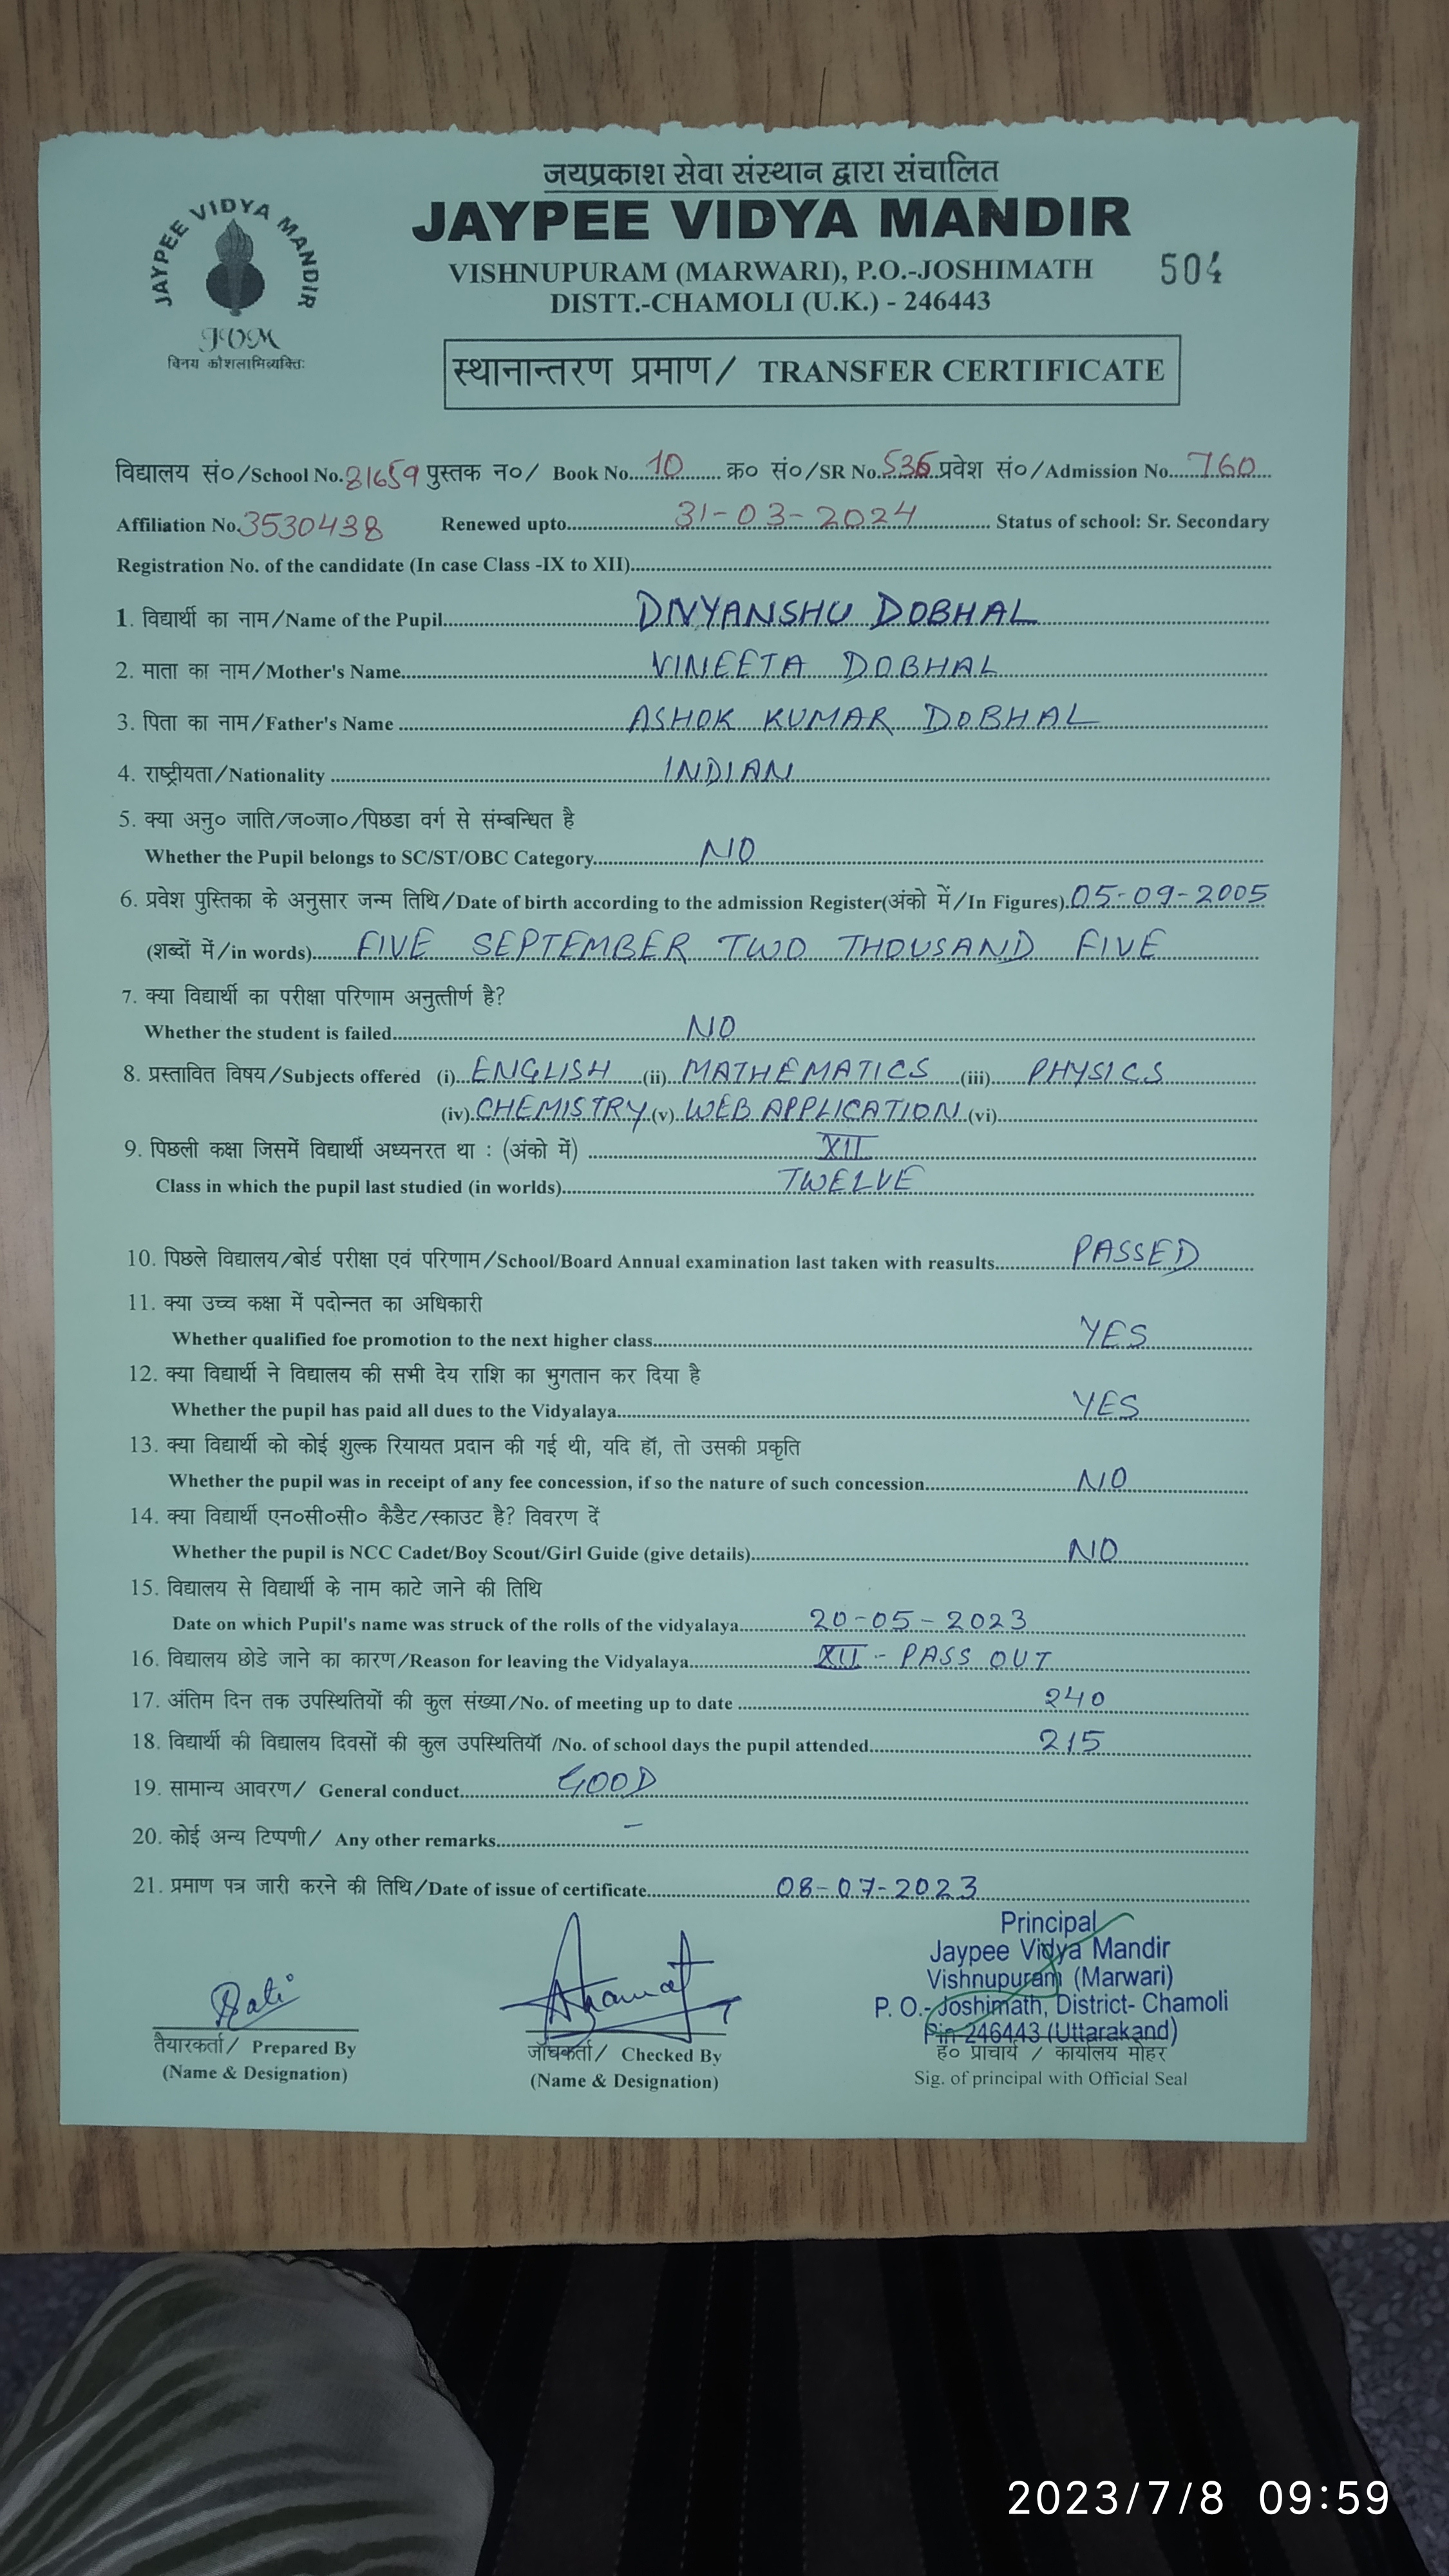 जयप्रकाश सेवा संस्थान द्वारा संचालित
JAYPEE VIDYA MANDIR
JAYPEE VIDYA MANDIR
VISHNUPURAM (MARWARI), P.O.-JOSHIMATH
504
DISTT.-CHAMOLI (U.K.) - 246443
JVM
विनय कौशलाभिव्यक्तिः
स्थानान्तरण प्रमाण/ TRANSFER CERTIFICATE
विद्यालय सं०/School No. 81659 पुस्तक न०/ Book No. 10 क्र० सं०/SR No. 536 प्रवेश सं०/Admission No. 760
Affiliation No. 3530438 Renewed upto 31-03-2024 Status of school: Sr. Secondary
Registration No. of the candidate (In case Class -IX to XII)
1. विद्यार्थी का नाम/Name of the Pupil DIVYANSHU DOBHAL
2. माता का नाम/Mother's Name VINEETA DOBHAL
3. पिता का नाम/Father's Name ASHOK KUMAR DOBHAL
4. राष्ट्रीयता/Nationality INDIAN
5. क्या अनु० जाति/ज०जा०/पिछडा वर्ग से संम्बन्धित है
Whether the Pupil belongs to SC/ST/OBC Category NO
6. प्रवेश पुस्तिका के अनुसार जन्म तिथि/Date of birth according to the admission Register(अंको में/In Figures) 05-09-2005
(शब्दों में/in words) FIVE SEPTEMBER TWO THOUSAND FIVE
7. क्या विद्यार्थी का परीक्षा परिणाम अनुत्तीर्ण है?
Whether the student is failed NO
8. प्रस्तावित विषय/Subjects offered (i) ENGLISH (ii) MATHEMATICS (iii) PHYSICS
(iv) CHEMISTRY (v) WEB APPLICATION (vi)
9. पिछली कक्षा जिसमें विद्यार्थी अध्यनरत था : (अंको में) XII
Class in which the pupil last studied (in worlds) TWELVE
10. पिछले विद्यालय/बोर्ड परीक्षा एवं परिणाम/School/Board Annual examination last taken with reasults PASSED
11. क्या उच्च कक्षा में पदोन्नत का अधिकारी
Whether qualified foe promotion to the next higher class YES
12. क्या विद्यार्थी ने विद्यालय की सभी देय राशि का भुगतान कर दिया है
Whether the pupil has paid all dues to the Vidyalaya YES
13. क्या विद्यार्थी को कोई शुल्क रियायत प्रदान की गई थी, यदि हॉ, तो उसकी प्रकृति
Whether the pupil was in receipt of any fee concession, if so the nature of such concession NO
14. क्या विद्यार्थी एन०सी०सी० कैडैट/स्काउट है? विवरण दें
Whether the pupil is NCC Cadet/Boy Scout/Girl Guide (give details) NO
15. विद्यालय से विद्यार्थी के नाम काटे जाने की तिथि
Date on which Pupil's name was struck of the rolls of the vidyalaya 20-05-2023
16. विद्यालय छोडे जाने का कारण/Reason for leaving the Vidyalaya XII - PASS OUT
17. अंतिम दिन तक उपस्थितियों की कुल संख्या/No. of meeting up to date 240
18. विद्यार्थी की विद्यालय दिवसों की कुल उपस्थितियॉ /No. of school days the pupil attended 215
19. सामान्य आवरण/ General conduct GOOD
20. कोई अन्य टिप्पणी/ Any other remarks -
21. प्रमाण पत्र जारी करने की तिथि/Date of issue of certificate 08-07-2023
Principal
Jaypee Vidya Mandir
Vishnupuram (Marwari)
P. O.- Joshimath, District- Chamoli
Pin-246443 (Uttarakand)
तैयारकर्ता/ Prepared By
(Name & Designation)
जॉचकर्ता/ Checked By
(Name & Designation)
ह० प्राचार्य / कार्यालय मोहर
Sig. of principal with Official Seal
2023/7/8 09:59